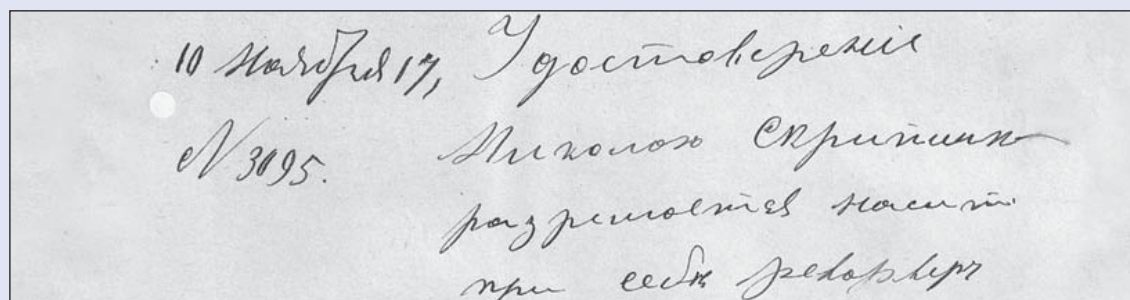 10 Ноября 17, Удостоверенiе
N 3095. Миколою Скрипник
разрешается носит
при себѣ револьверъ